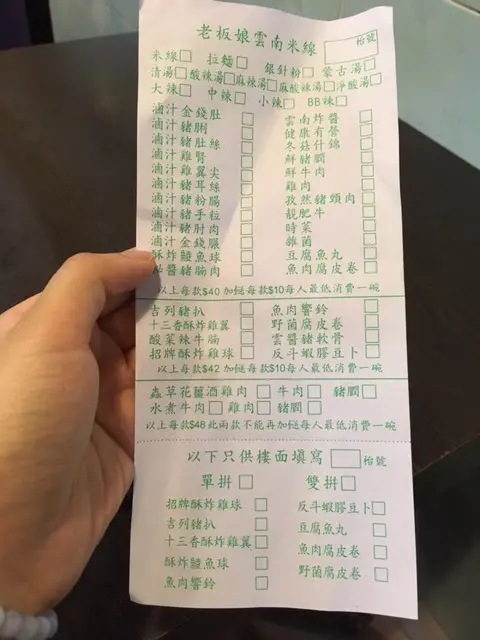 老板娘雲南米線 枱號
米線 拉麵 銀針粉 蒙古湯
清湯 酸辣湯 麻辣湯 麻酸辣湯 淨酸湯
大辣 中辣 小辣 BB辣
滷汁金錢肚 雲南炸醬
滷汁豬脷 健康有營
滷汁豬肚絲 冬菇什錦
滷汁雞腎 鮮豬膶
滷汁雞翼尖 鮮牛肉
滷汁豬耳絲 雞肉
滷汁豬粉腸 孜然豬頸肉
滷汁豬手粒 靚肥牛
滷汁豬肘肉 時菜
滷汁金錢𦟌 雜菌
酥炸鯪魚球 豆腐魚丸
醬豬腩肉 魚肉腐皮卷
以上每款$40 加餸每款$10每人最低消費一碗
吉列豬扒 魚肉響鈴
十三香酥炸雞翼 野菌腐皮卷
酸菜辣牛腩 雲醬豬軟骨
招牌酥炸雞球 反斗蝦膠豆卜
以上每款$42 加餸每款$10每人最低消費一碗
蟲草花薑酒雞肉 牛肉 豬膶
水煮牛肉 雞肉 豬膶
以上每款$48 此兩款不能再加餸每人最低消費一碗
以下只供樓面填寫 枱號
單拼 雙拼
招牌酥炸雞球 反斗蝦膠豆卜
吉列豬扒 豆腐魚丸
十三香酥炸雞翼 魚肉腐皮卷
酥炸鯪魚球 野菌腐皮卷
魚肉響鈴